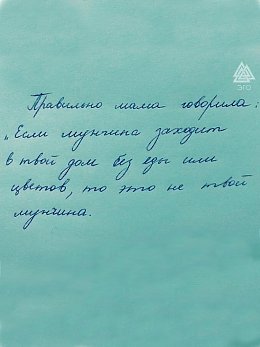 ЭГО
Правильно мама говорила:
„Если мужчина заходит
в твой дом без еды или
цветов, то это не твой
мужчина.